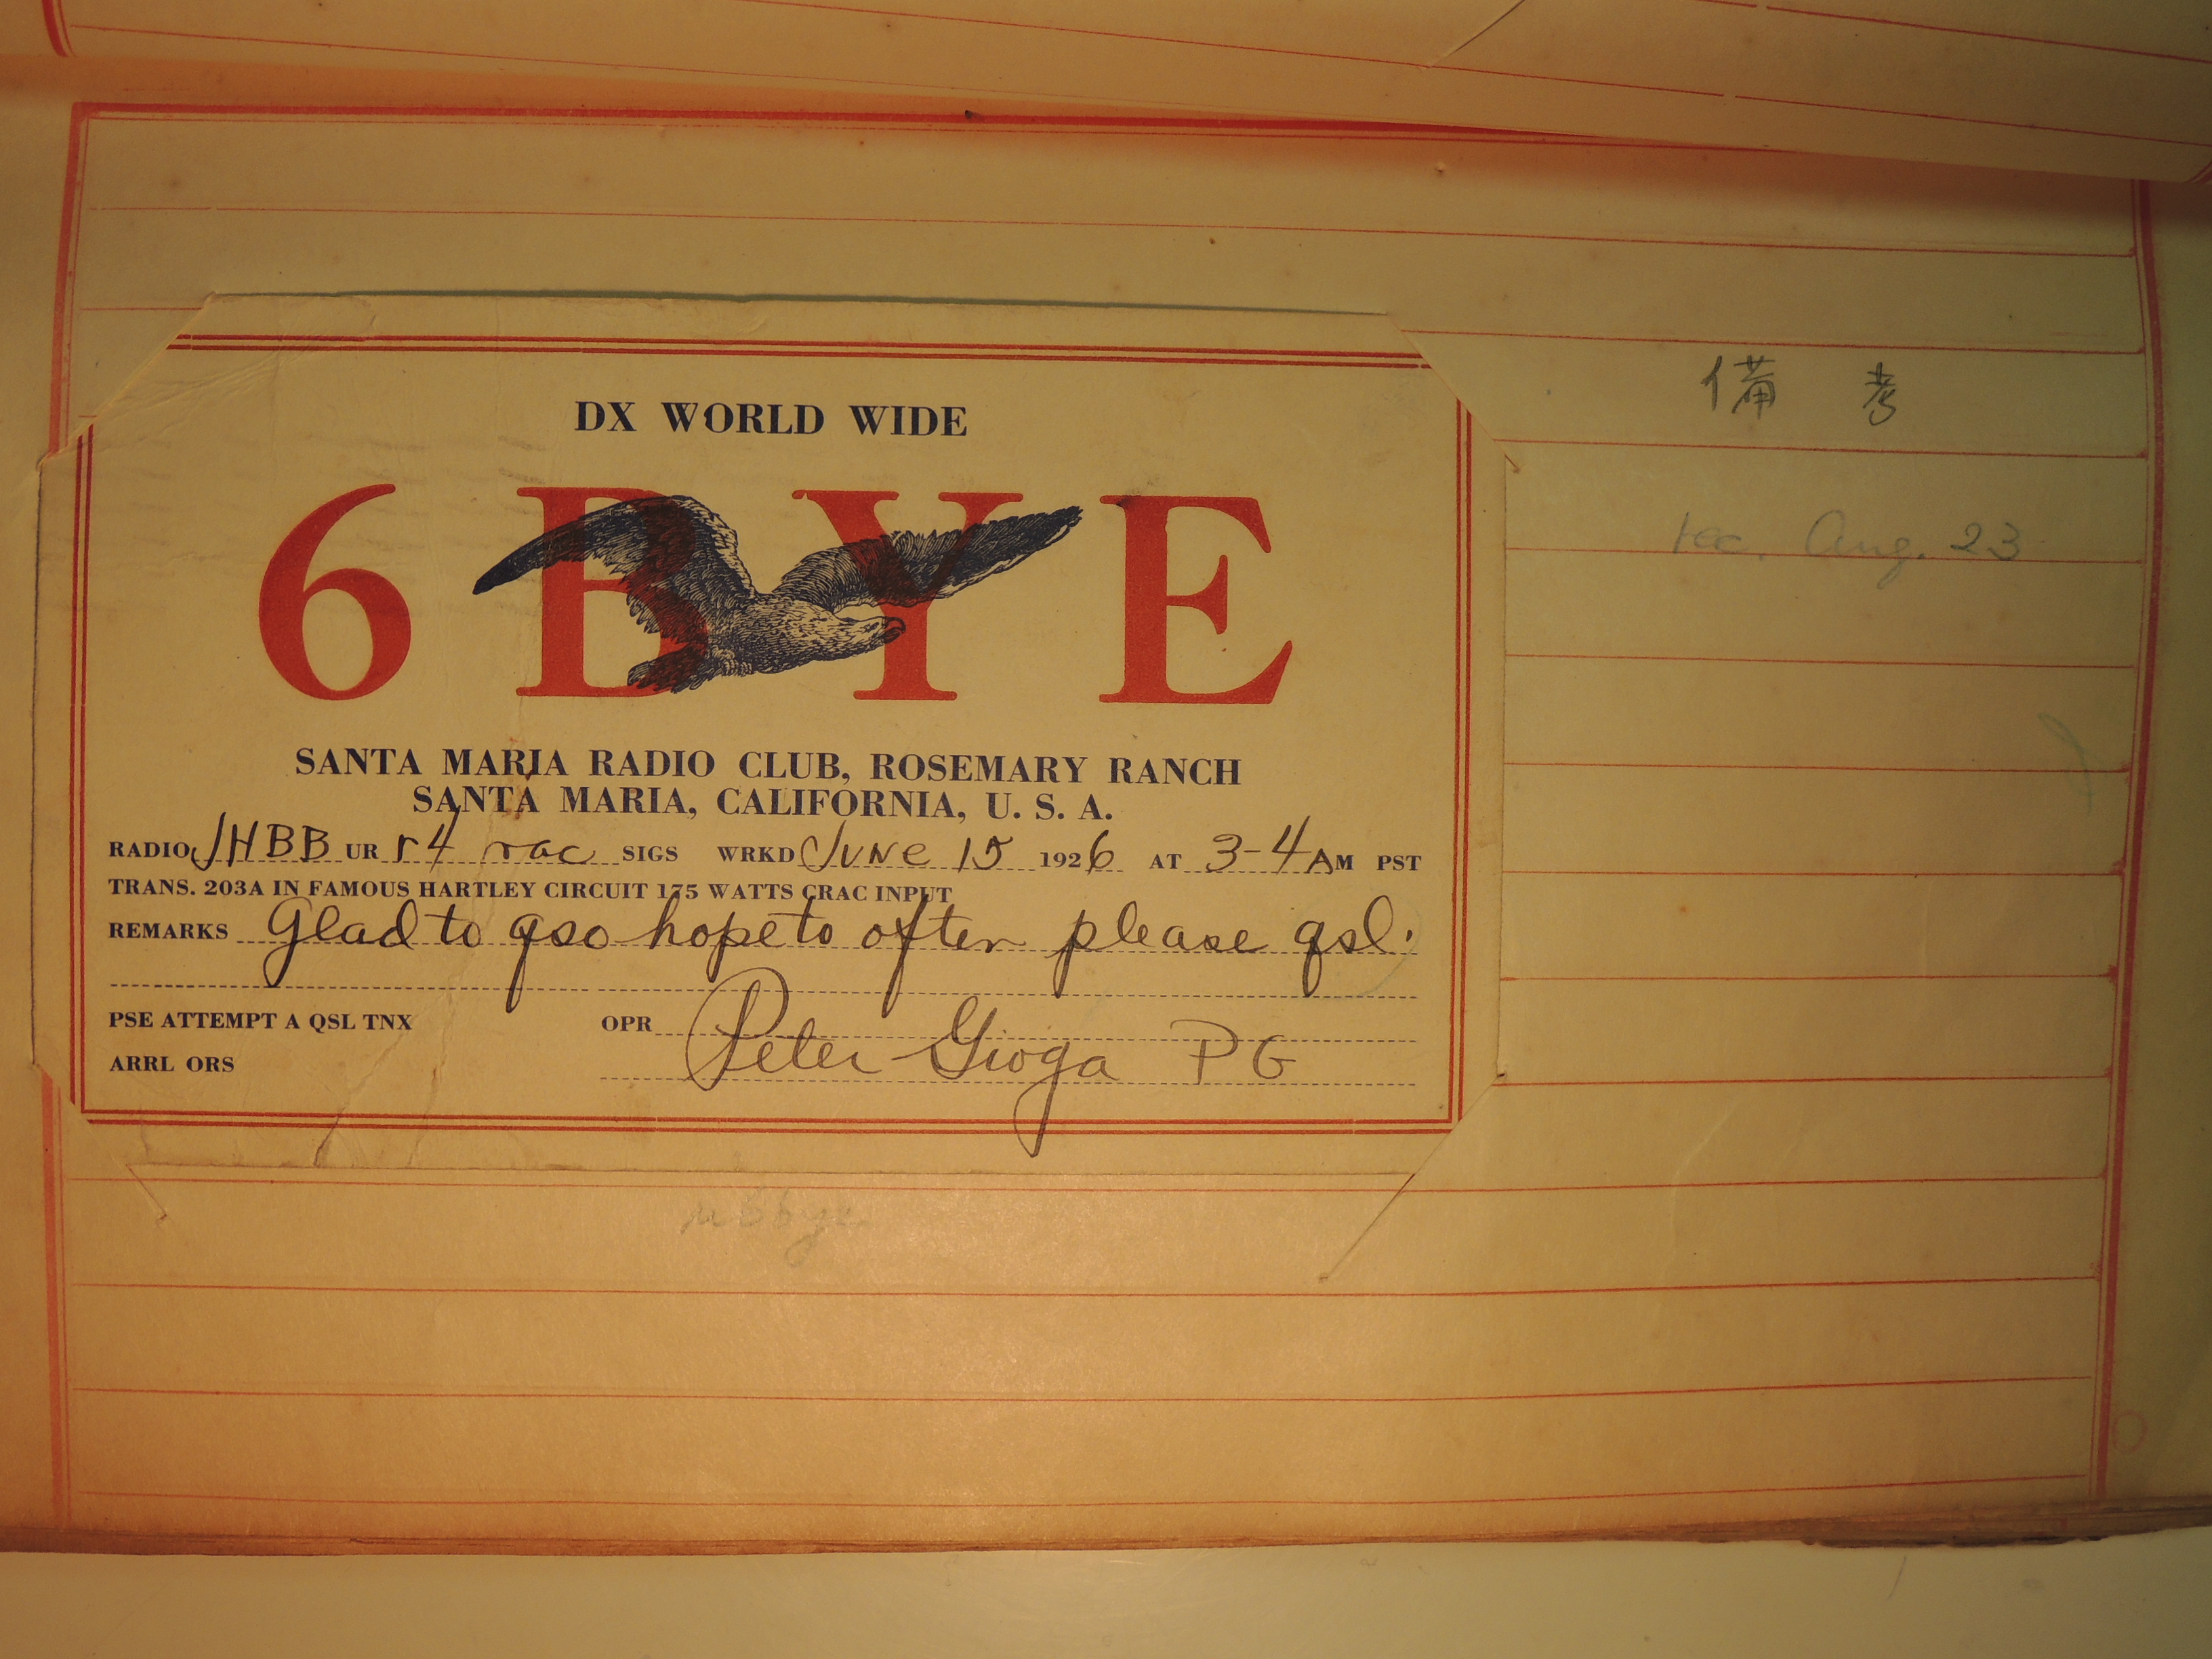 DX WORLD WIDE
6 BYE
SANTA MARIA RADIO CLUB, ROSEMARY RANCH
SANTA MARIA, CALIFORNIA, U. S. A.
RADIO JHBB UR r4 rac SIGS WRKD June 15 1926 AT 3-4 AM PST
TRANS. 203A IN FAMOUS HARTLEY CIRCUIT 175 WATTS CRAC INPUT
REMARKS Glad to qso hope to often please qsl.
PSE ATTEMPT A QSL TNX OPR Peter Gioga PG
ARRL ORS
備 考
rec. Aug. 23